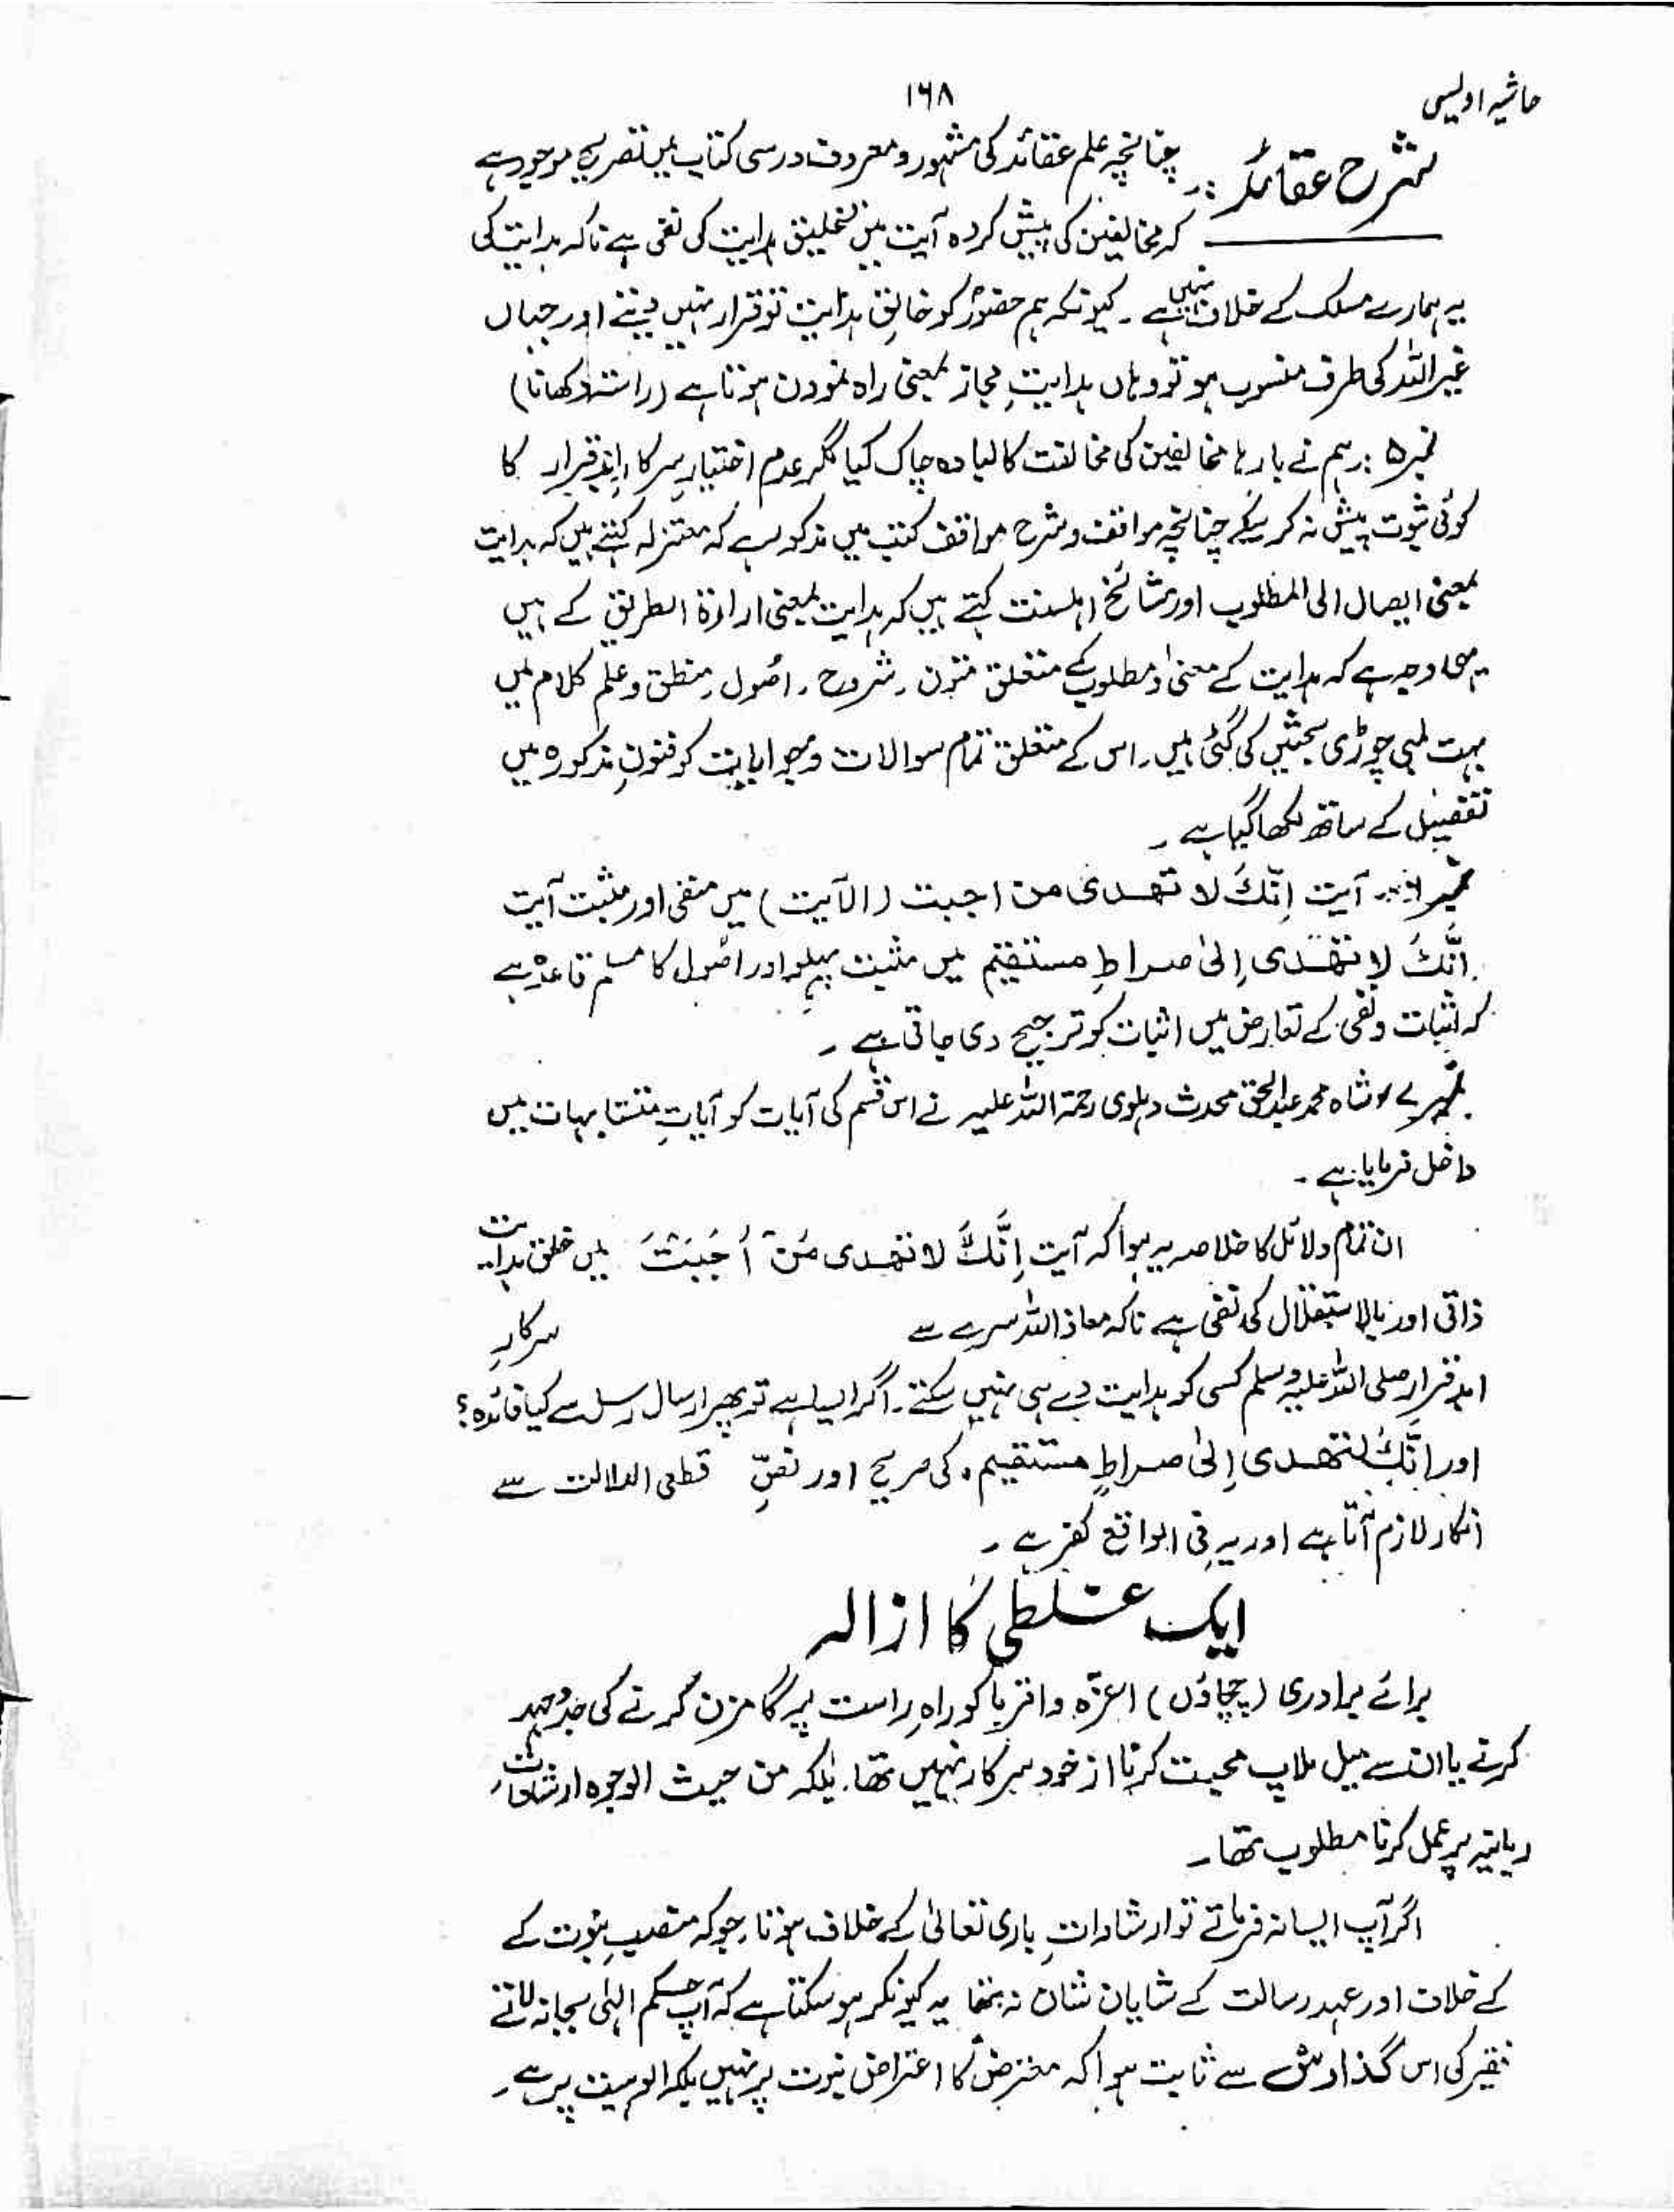 حاشیہ اویسی
۱۶۸
شرح عقائد :۔ چنانچہ علم عقائد کی مشہور و معروف درسی کتاب میں تصریح موجود ہے
کہ مخالفین کی پیش کردہ آیت میں تخلیق ہدایت کی نفی ہے ناکہ ہدایت کی
یہ ہمارے مسلک کے خلاف نہیں ہے ۔ کیونکہ ہم حضورؐ کو خالقِ ہدایت تو قرار نہیں دیتے اور جہاں
غیر اللہ کی طرف منسوب ہو تو وہاں ہدایتِ مجاز بمعنی راہ نمودن ہوتا ہے (راستہ دکھانا)
نمبر ۵ : ہم نے بارہا مخالفین کی مخالفت کا لبادہ چاک کیا مگر عدم اختیارِ سرکارِ ابد قرار کا
کوئی ثبوت پیش نہ کر سکے چنانچہ مواقف و شرح مواقف کتب میں مذکور ہے کہ معتزلہ کہتے ہیں کہ ہدایت
بمعنی ایصال الی المطلوب اور مشائخ اہلسنت کہتے ہیں کہ ہدایت بمعنی اراۃ الطریق کے ہیں
یہی وجہ ہے کہ ہدایت کے معنیٰ و مطلوب کے متعلق متون ۔ شروح ۔ اصُول ۔ منطق و علم کلام میں
بہت لمبی چوڑی بحثیں کی گئی ہیں ۔ اس کے متعلق تمام سوالات و جوابات کو فنونِ مذکورہ میں
تفصیل کے ساتھ لکھا گیا ہے ۔
نمبر ۶ :۔ آیت اِنَّكَ لا تھدی من احببت (الآیت) میں منفی اور مثبت آیت
اِنَّكَ لا تھدی اِلیٰ صراطِ مستقیم میں مثبت پہلو اور اصُول کا مسلم قاعدہ ہے
کہ اثبات و نفی کے تعارض میں اثبات کو ترجیح دی جاتی ہے ۔
نمبر ۷ شاہ محمد عبدالحق محدث دہلوی رحمۃ اللہ علیہ نے اس قسم کی آیات کو آیاتِ متشابہات میں
داخل فرمایا ہے ۔
ان تمام دلائل کا خلاصہ یہ ہوا کہ آیت اِنَّكَ لا تھدی مَنْ أَحْبَبْتَ میں خلق ہدایت
ذاتی اور بالاستقلال کی نفی ہے ناکہ معاذ اللہ سرے سے سرکارِ
ابد قرار صلی اللہ علیہ وسلم کسی کو ہدایت دے ہی نہیں سکتے ۔ اگر ایسا ہے تو پھر ارسال رسل سے کیا فائدہ ؟
اور اِنَّكَ لتھدی اِلیٰ صراطٍ مستقیم ۔ کی صریح اور نصِّ قطعی الدلالت سے
انکار لازم آتا ہے اور یہ فی الواقع کفر ہے ۔
ایک غلطی کا ازالہ
برائے برادری (چچاؤں) اعزّہ و اقربا کو راہِ راست پر گامزن کرنے کی جدوجہد
کرنے یا ان سے میل ملاپ محبت کرنا از خود سرکار نہیں تھا ۔ بلکہ من حیث الوجوہ ارشادات
ربانیہ پر عمل کرنا مطلوب تھا ۔
اگر آپ ایسا نہ فرماتے تو ارشاداتِ باری تعالیٰ کے خلاف ہوتا ۔ جو کہ منصبِ نبوت کے
کے خلاف اور عہد رسالت کے شایانِ شان نہ تھا یہ کیونکر ہو سکتا ہے کہ آپ حکم الہٰی بجا نہ لاتے
فقیر کی اس گذارش سے ثابت ہوا کہ معترض کا اعتراض نبوت پر نہیں بلکہ الوہیت پر ہے ۔